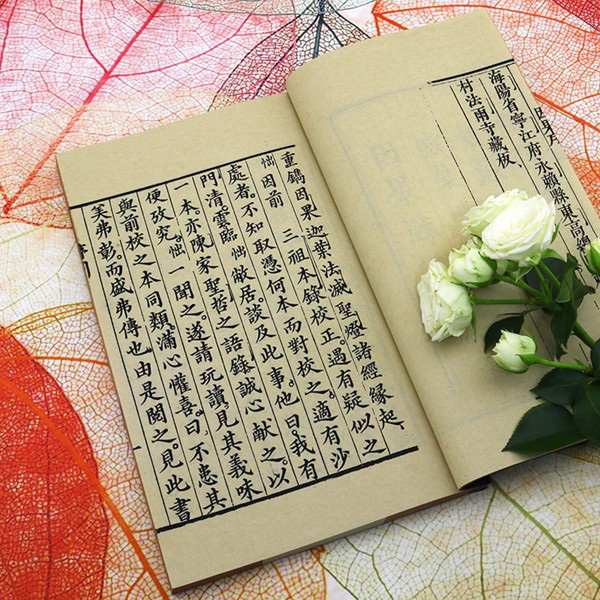 海陽省寧江府永賴縣東高總
村法雨寺藏板
重鐫因果迦葉法滅聖燈諸經緣起
拙因前 三祖本錄校正。遇有疑似之
處者。不知取憑何本而對校之。適有沙
門清雲臨拙敝居。談及此事。他曰。我有
一本。亦陳家聖哲之語錄誠心獻之。以
便攷究。拙一聞之。遂請玩讀。見其義味
與前校之本同類。滿心懽喜。曰。不患其
美弗彰。而盛弗傳也由是閱之。見此書